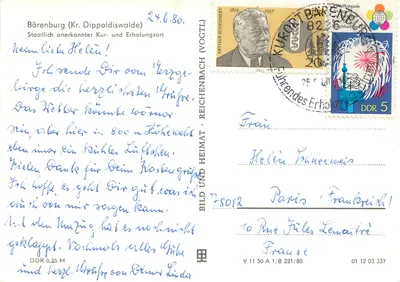 Bärenburg (Kr. Dippoldiswalde)
Staatlich anerkannter Kur- und Erholungsort
24.6.80.
Helen!
Ich sende Dir vom Erzge-
birge die herzlichsten Grüße.
Das Wetter könnte wärmer
sein, aber hier in 800 m Höhe weht
eben immer ein kühles Lüftchen.
Vielen Dank für Deine Kartengrüße.
Ich hoffe, es geht Dir gut, was ich
auch von mir sagen kann.
Mit dem Umzug hat es noch nicht
geklappt. Nochmals alles Gute
und herzl. Grüße von Deiner Linda
DDR 0,25 M
BILD UND HEIMAT · REICHENBACH (VOGTL)
ARTHUR HOFFMANN
1957
20
KURORT BÄRENBURG
8236
DDR 5
Frau
Helen
Paris (Frankreich)
75012
10 Rue Jules Lemaître
France
V 11 50 A 1/B 221/80
01 12 03 337